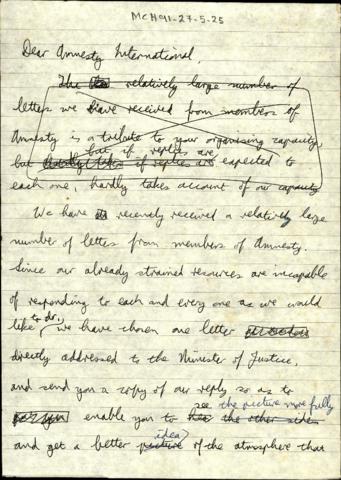 MCH91-27-5-25
Dear Amnesty International,
The relatively large number of
letters we have received from members of
Amnesty is a tribute to your organising capacity,
but, if replies are
but if replies are expected to
each one, hardly takes account of our capacity
We have recently received a relatively large
number of letters from members of Amnesty.
Since our already strained resources are incapable
of responding to each and every one as we would
to do,
like we have chosen one letter
directly addressed to the Minister of Justice,
and send you a copy of our reply so as to
see the picture more fully
enable you to the other sides
idea
and get a better picture of the atmosphere that